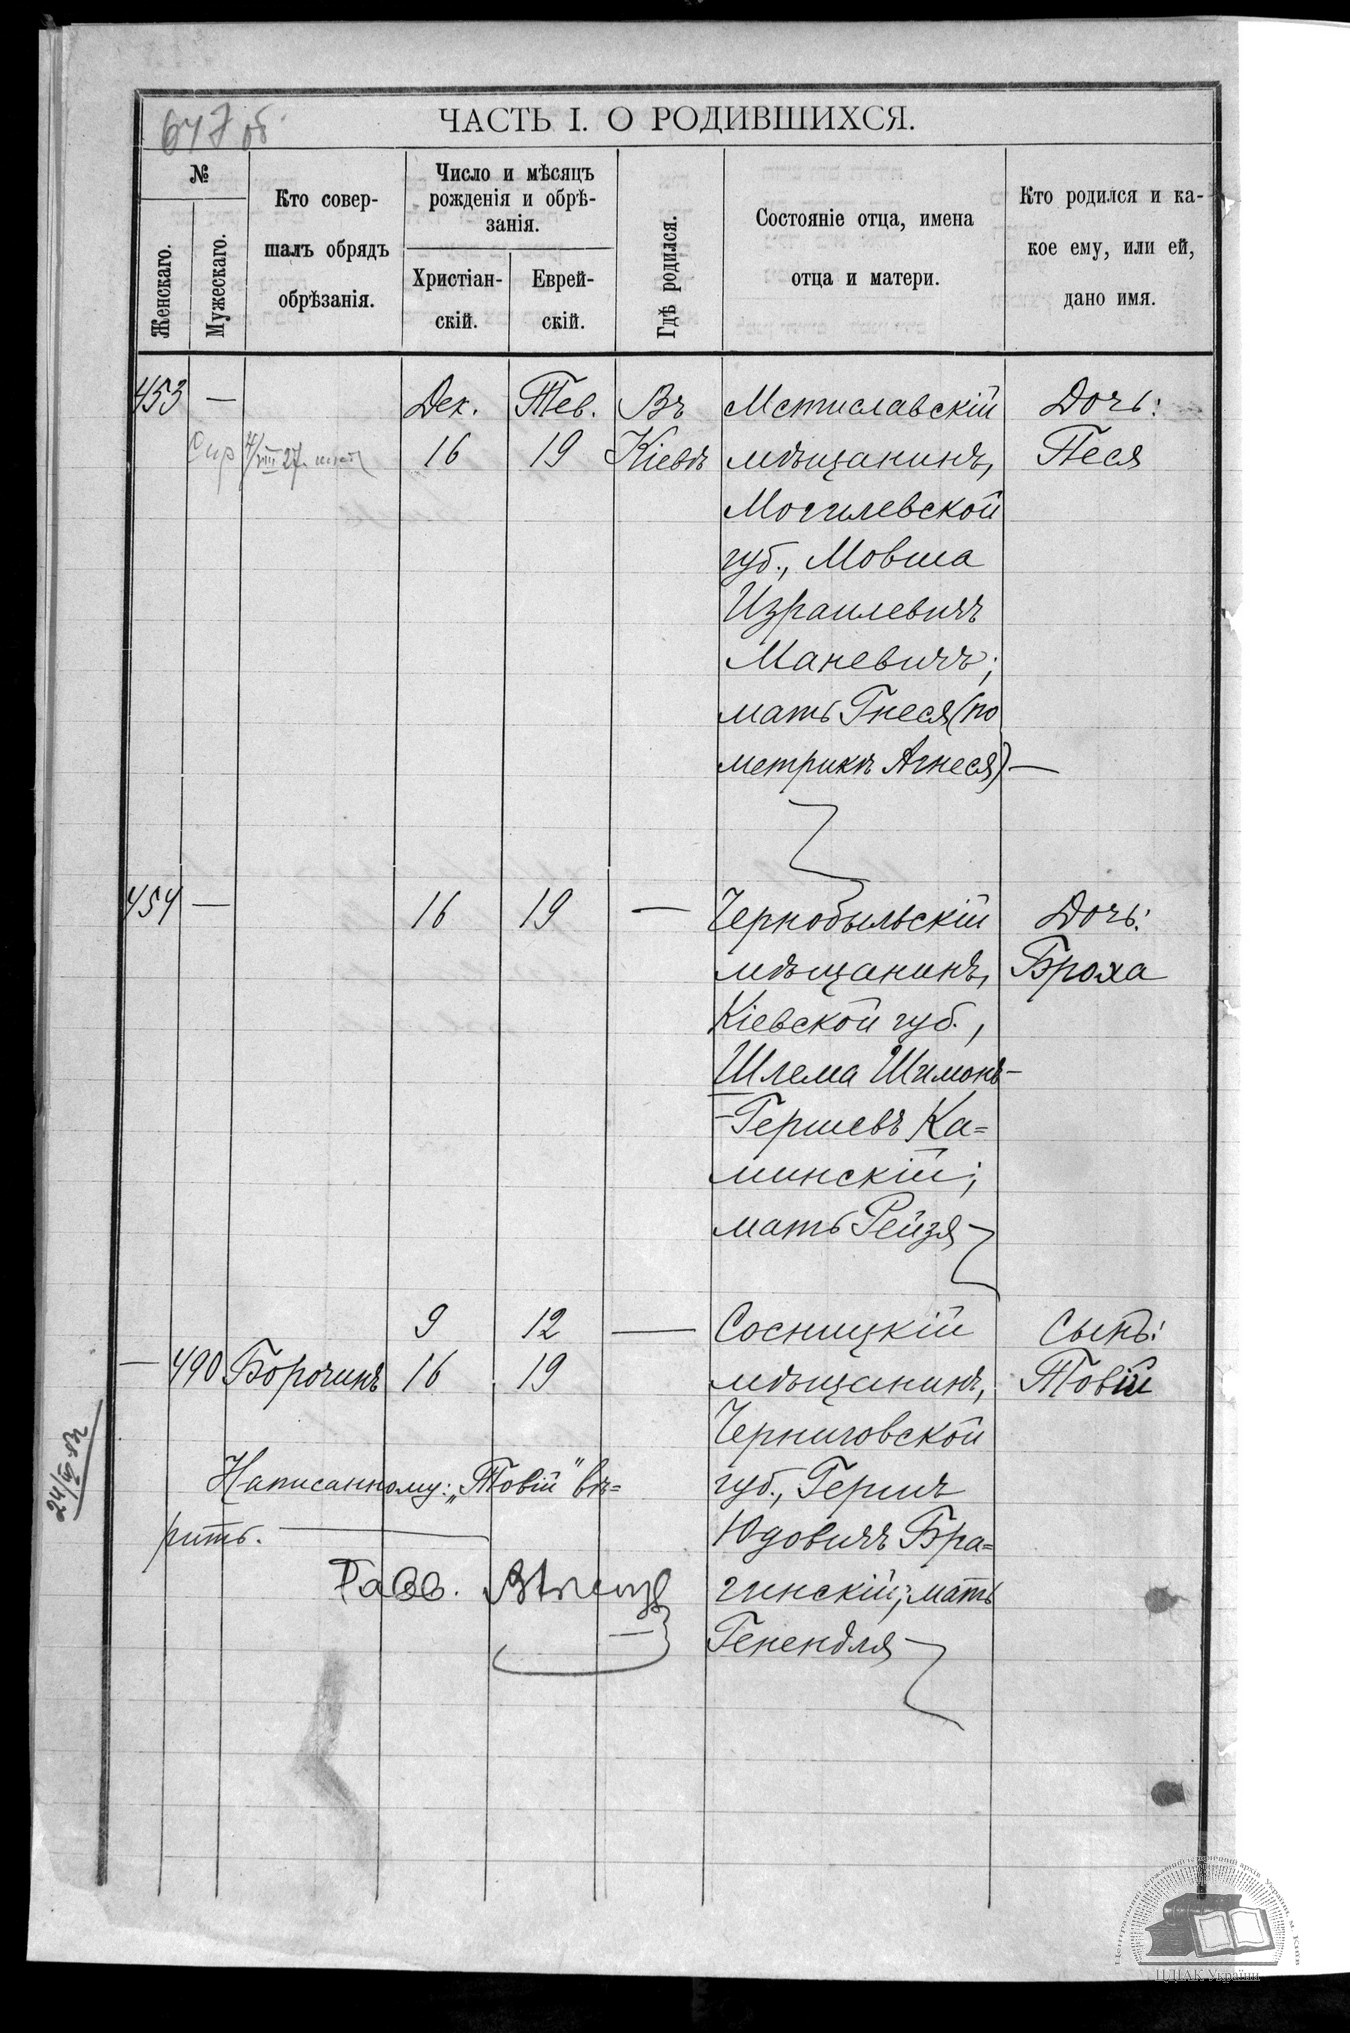 647 об.
ЧАСТЬ I. О РОДИВШИХСЯ.
№
Женскаго.
Мужескаго.
Кто совер-
шалъ обрядъ
обрѣзанія.
Число и мѣсяцъ
рожденія и обрѣ-
занія.
Христіан-
скій.
Еврей-
скій.
Гдѣ родился.
Состояніе отца, имена
отца и матери.
Кто родился и ка-
кое ему, или ей,
дано имя.
453 — Дек. Тев. Въ Мстиславскій Дочь:
16 19 Кіевѣ мѣщанинъ, Песя
Могилевской
губ., Мовша
Израилевичъ
Маневичъ;
мать Гнеся (по
метрикѣ Агнеся) —
454 — 16 19 — Чернобыльскій Дочь:
мѣщанинъ, Броха
Кіевской губ.,
Шлема Шимонъ-
-Гершевъ Ка=
минскій;
мать Рейзя
9 12 — Сосницкій Сынъ:
— 490 Борочинъ 16 19 мѣщанинъ, Товій
Черниговской
Написанному: „Товій" вѣ= губ., Гершъ
рить. — Юдовичъ Бра=
Равв. гинскій; мать
Генендля
ЦДІАК України